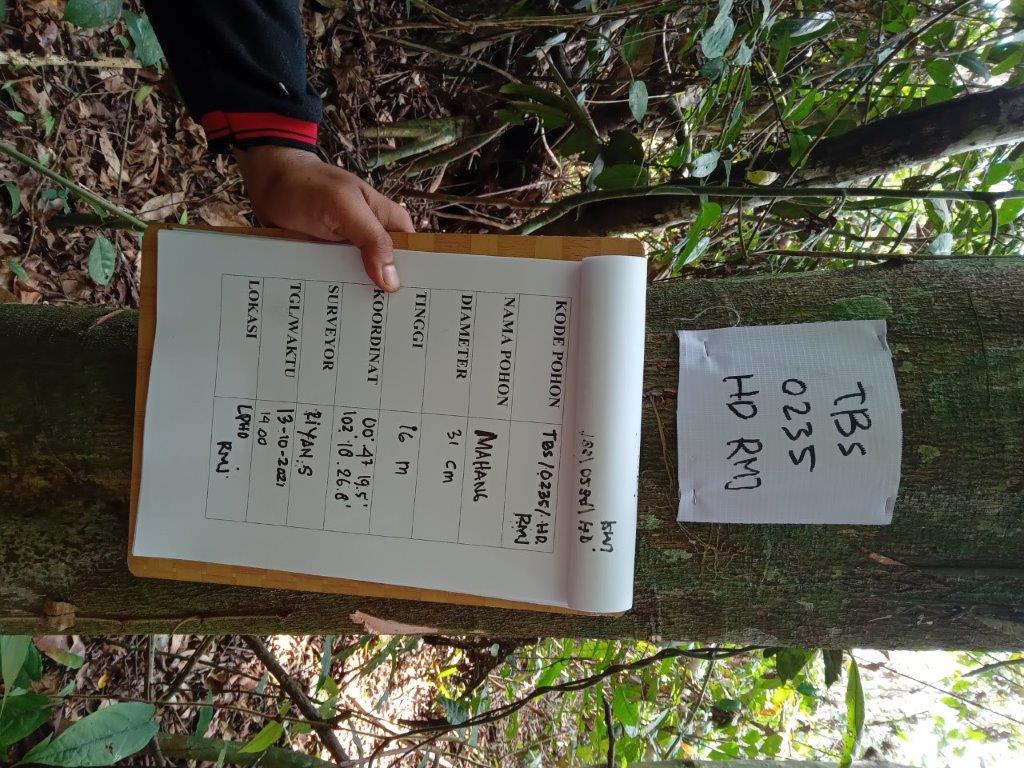 TBS
0235
HD RMJ
KODE POHON TBS/0235/ HD.
RMJ
NAMA POHON MAHANG
DIAMETER 31 cm
TINGGI 16 m
KOORDINAT 00°.47 19.5'
102°.18.26.8'
SURVEYOR RIYAN.S
TGL/WAKTU 13-10-2021
14.00
LOKASI LPHD
RMJ